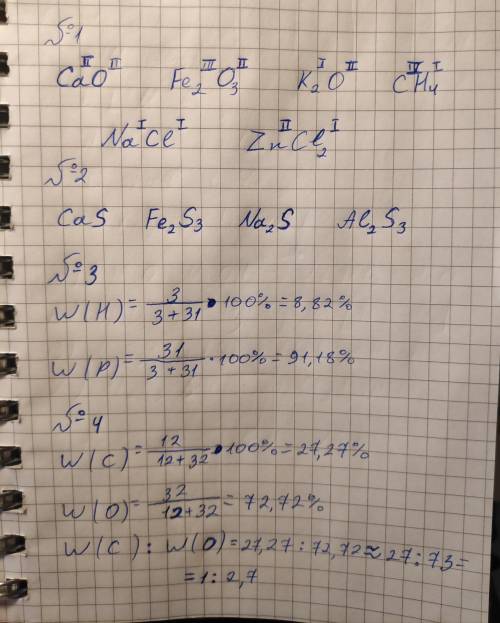 №1
Ca^II O^II Fe₂^III O₃^II K₂^I O^II C^IV H₄^I
Na^I Cl^I Zn^II Cl₂^I
№2
CaS Fe₂S₃ Na₂S Al₂S₃
№3
W(H) = 3/(3+31) · 100% = 8,82%
W(P) = 31/(3+31) · 100% = 91,18%
№4
W(C) = 12/(12+32) · 100% = 27,27%
W(O) = 32/(12+32) = 72,72%
W(C) : W(O) = 27,27 : 72,72 ≈ 27 : 73 =
= 1 : 2,7